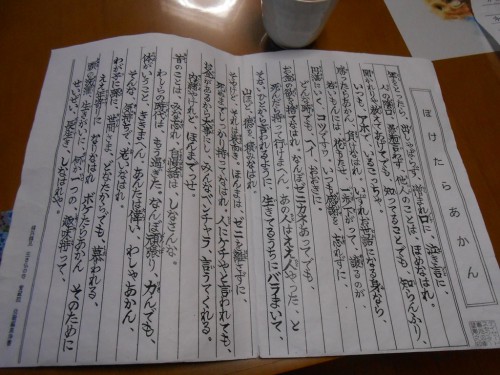 ぼけたらあかん
年をとったら、出しゃばらず、憎まれ口に、泣き言に
人のかげ口、愚痴言わず、他人のことは、ほめなはれ
聞かれりゃ教えてあげても、知ってることでも、知らんふり、
いつでもアホで、いるこっちゃ。
勝ったらあかん、負けなはれ、いずれお世話になる身なら、
若いもんには花もたせ、一歩下がって、譲るのが
円満にいく、コツですわ、いつも感謝を、忘れずに、
どんな時でも、へえ、おおきに。
お金の欲を、捨てなはれ、なんぼゼニカネあってでも、
死んだら持って行けまへん、あの人はええ人やった、と
そないに人から言われるように、生きてるうちにバラまいて、
山ほど、徳を、積みなはれ。
そやけど、それは表向き、ほんまは、ゼニを離さずに、
死ぬまでしっかり、持ってなはれ、人にケチやと言われても、
お金があるから大事にし、みんなベンチャラ言うてくれる。
内緒やけれど、ほんまでっせ。
昔のことは、みな忘れ、自慢話は、しなさんな、
わしらの時代は、もう過ぎた、なんぼ頑張り、力んでも、
体がいうこと、ききまへん、あんたは偉い、わしゃあかん、
そんな気持ちで、おりなはれ。
わが子に孫に、世間さま、どなたからでも、慕われる、
ええ年寄りに、なりなはれ、ボケたらあかん そのために
頭の洗濯、生きがいに、何か一つの、趣味持って、
せいぜい長生き、しなはれや。